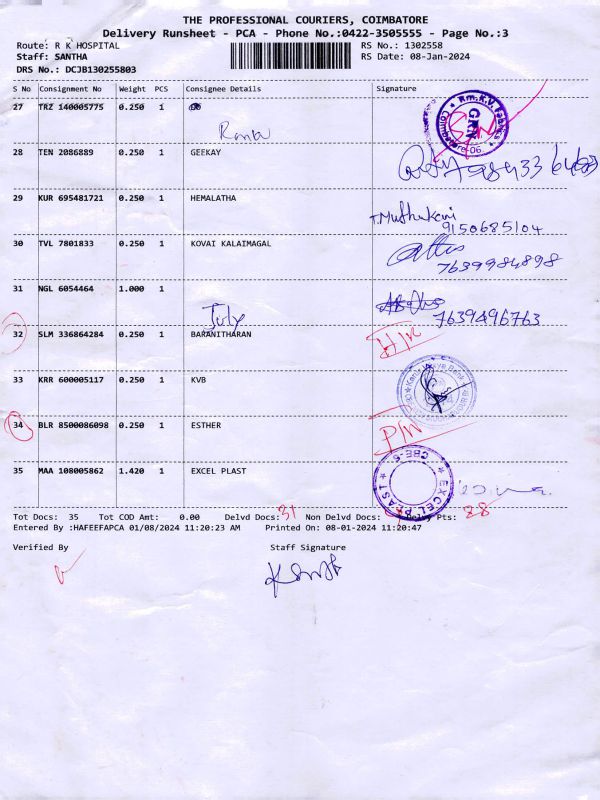 THE PROFESSIONAL COURIERS, COIMBATORE
Delivery Runsheet - PCA - Phone No.:0422-3505555 - Page No.:3
Route: R K HOSPITAL RS No.: 1302558
Staff: SANTHA RS Date: 08-Jan-2024
DRS No.: DCJB130255803
S No Consignment No Weight PCS Consignee Details Signature
27 TRZ 140005775 0.250 1
Rm.K.V. Fabrics
GRN
28 TEN 2086889 0.250 1 GEEKAY
29 KUR 695481721 0.250 1 HEMALATHA
T.Muthukani
9150685104
30 TVL 7801833 0.250 1 KOVAI KALAIMAGAL
7639984898
31 NGL 6054464 1.000 1
July
7639496763
32 SLM 336864284 0.250 1 BARANITHARAN
33 KRR 600005117 0.250 1 KVB
34 BLR 8500086098 0.250 1 ESTHER
35 MAA 108005862 1.420 1 EXCEL PLAST
EXCEL PLAST
CBE-5
Tot Docs: 35 Tot COD Amt: 0.00 Delvd Docs: 31 Non Delvd Docs: Pts: 28
Entered By :HAFEEFAPCA 01/08/2024 11:20:23 AM Printed On: 08-01-2024 11:20:47
Verified By Staff Signature